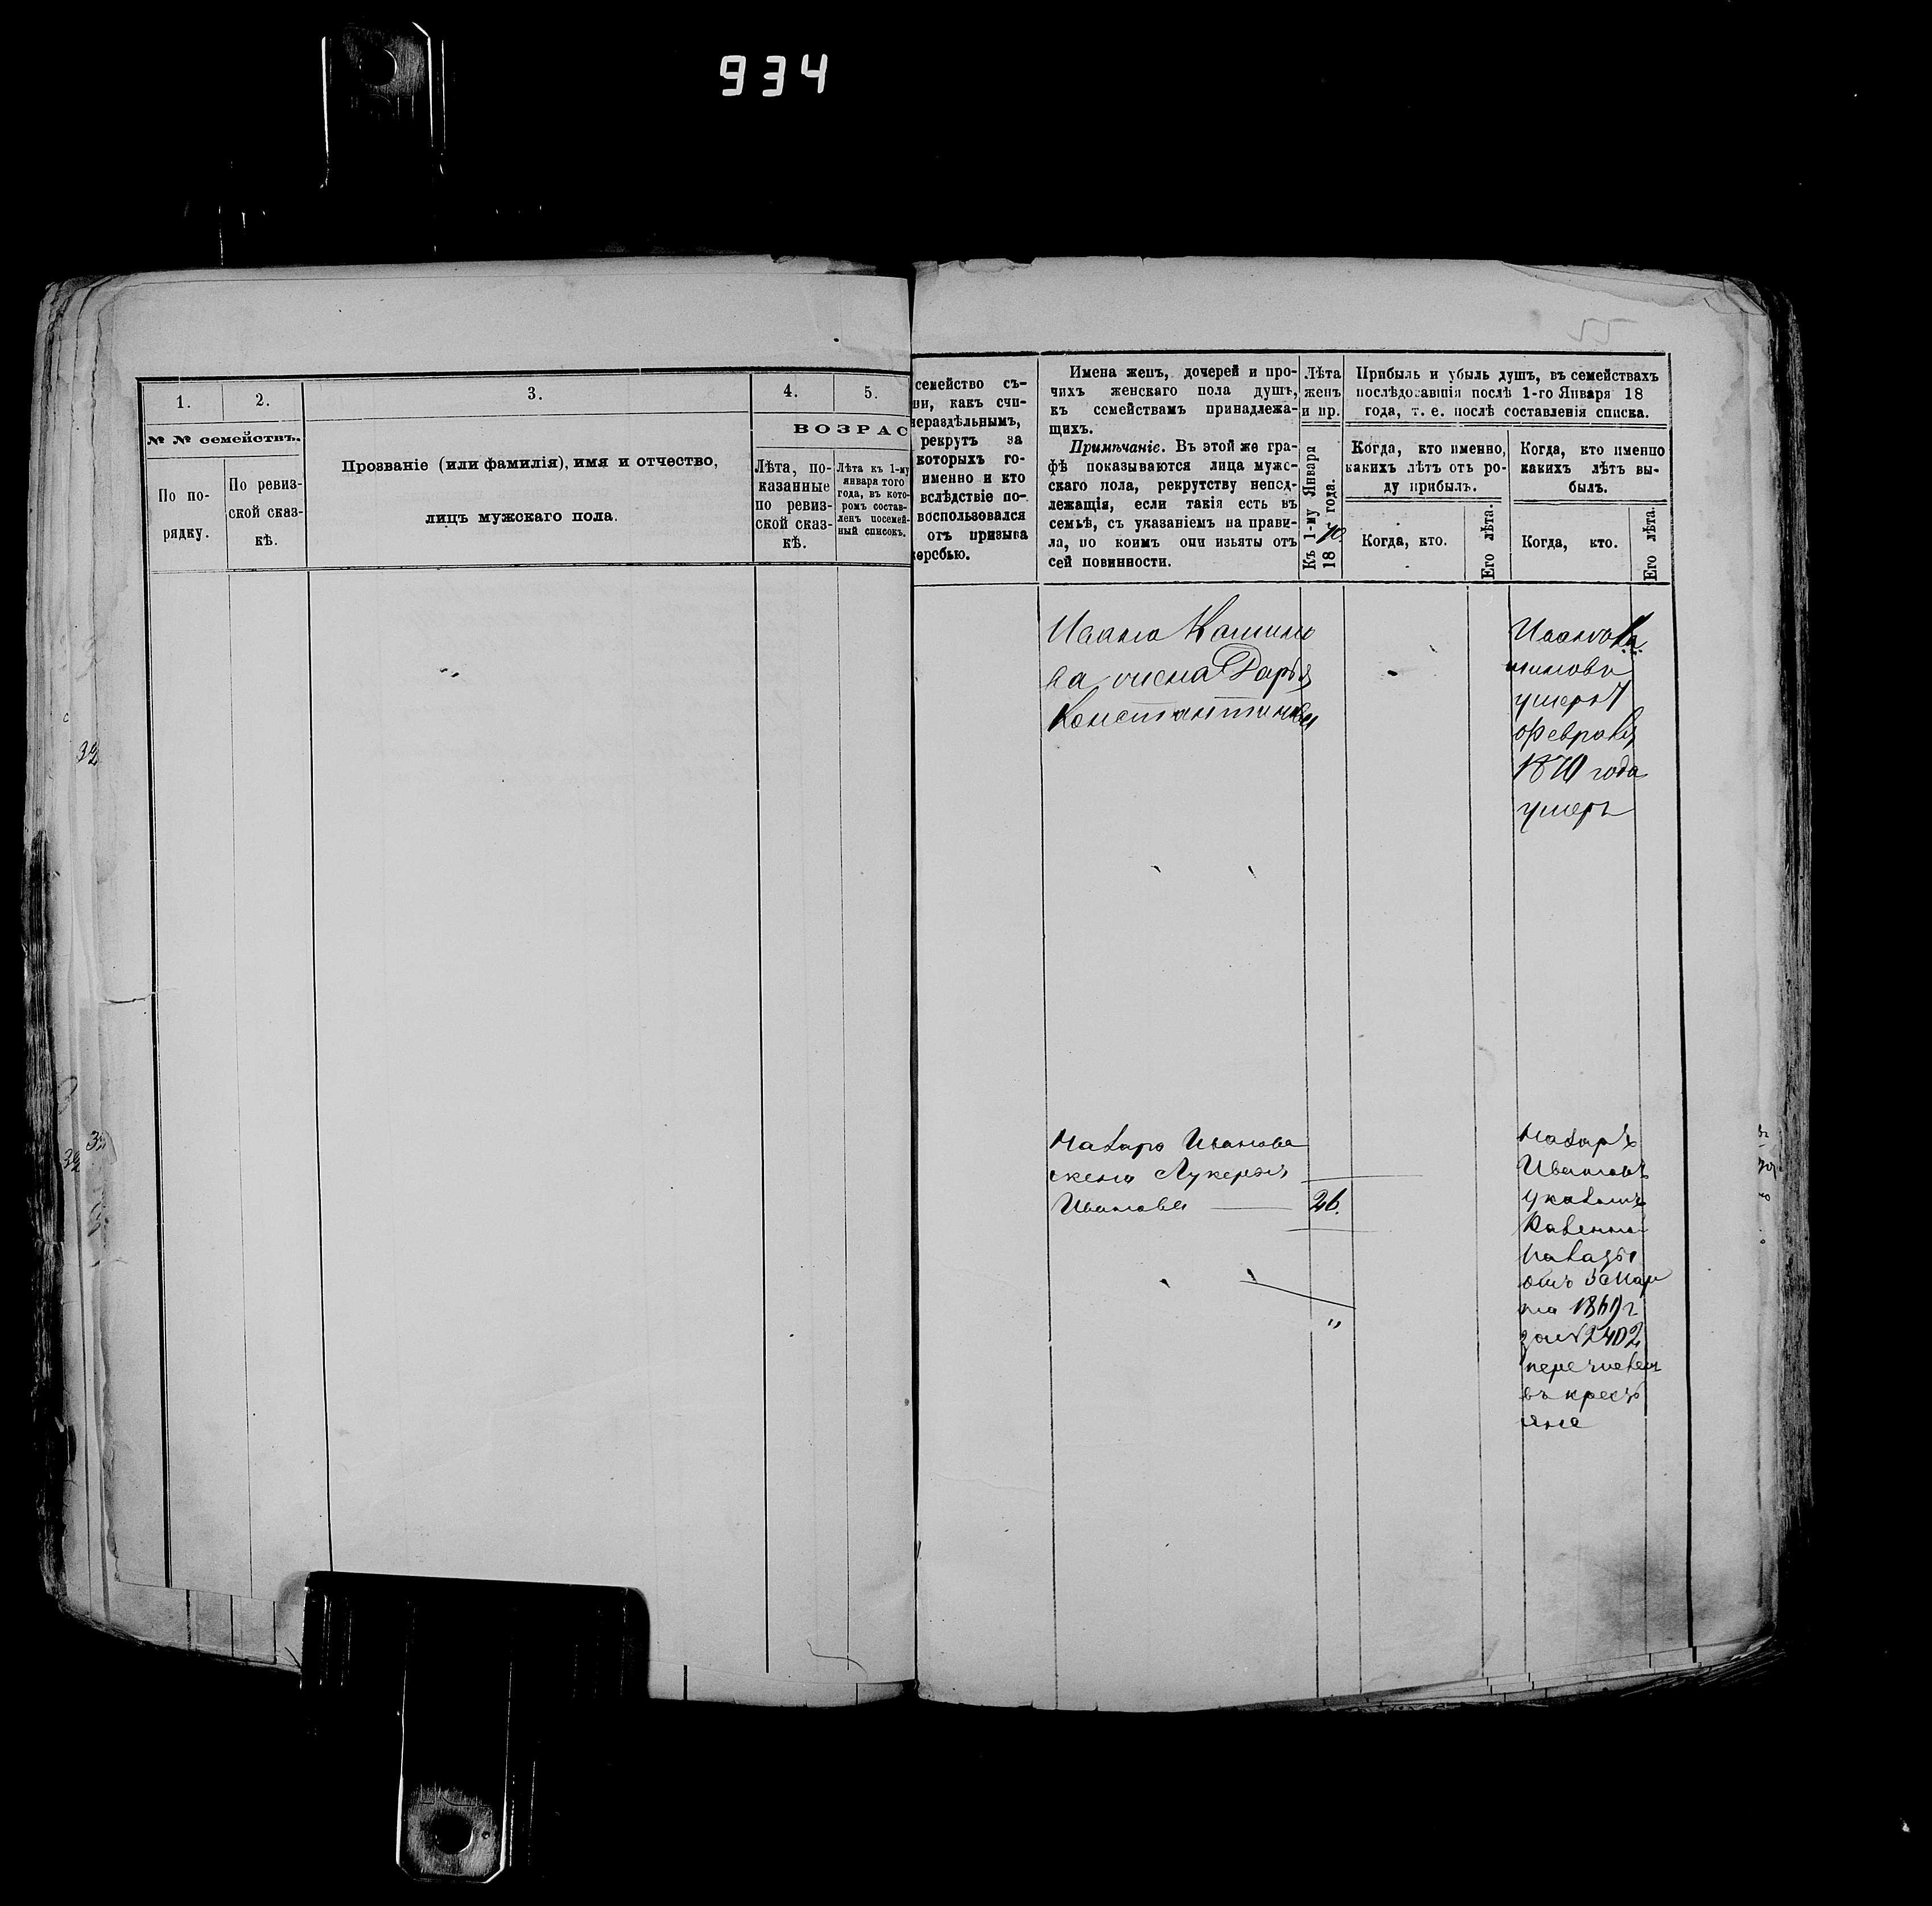 934
55
1.
2.
3.
4.
5.
№ № семействъ.
ВОЗРАС
По по-
рядку.
По ревиз-
ской сказ-
кѣ.
Прозваніе (или фамилія), имя и отчество,
лицъ мужскаго пола.
Лѣта, по-
казанные
по ревиз-
ской сказ-
кѣ.
Лѣта къ 1-му
января того
года, въ кото-
ромъ состав-
ленъ посемей-
ный списокъ.
семейство съ-
ни, какъ счи-
нераздѣльнымъ,
рекрутъ за
которыхъ го-
именно и кто
вслѣдствіе по-
воспользовался
отъ призыва
жеребью.
Имена женъ, дочерей и про-
чихъ женскаго пола душъ,
къ семействамъ принадлежа-
щихъ.
Примѣчаніе. Въ этой же гра-
фѣ показываются лица мужс-
скаго пола, рекрутству непод-
лежащія, если такія есть въ
семьѣ, съ указаніемъ на прави-
ла, по коимъ они изъяты отъ
сей повинности.
Лѣта
женъ
и пр.
Къ 1-му Января
18 70 года.
Прибыль и убыль душъ, въ семействахъ
послѣдовавшія послѣ 1-го Января 18
года, т. е. послѣ составленія списка.
Когда, кто именно,
какихъ лѣтъ отъ ро-
ду прибылъ.
Когда, кто именно
какихъ лѣтъ вы-
былъ.
Когда, кто.
Его лѣта.
Когда, кто.
Его лѣта.
Ивана
жена Дарья
Константинова
умеръ
Февраля
1870 года
умеръ
Макара Иванова
жена Лукерья
Иванова 26.
Макаръ
Ивановъ
Указомъ
Казенной
Палаты
отъ Мар
та 1869 г
за № 2402
перечислен
въ кресть
яне